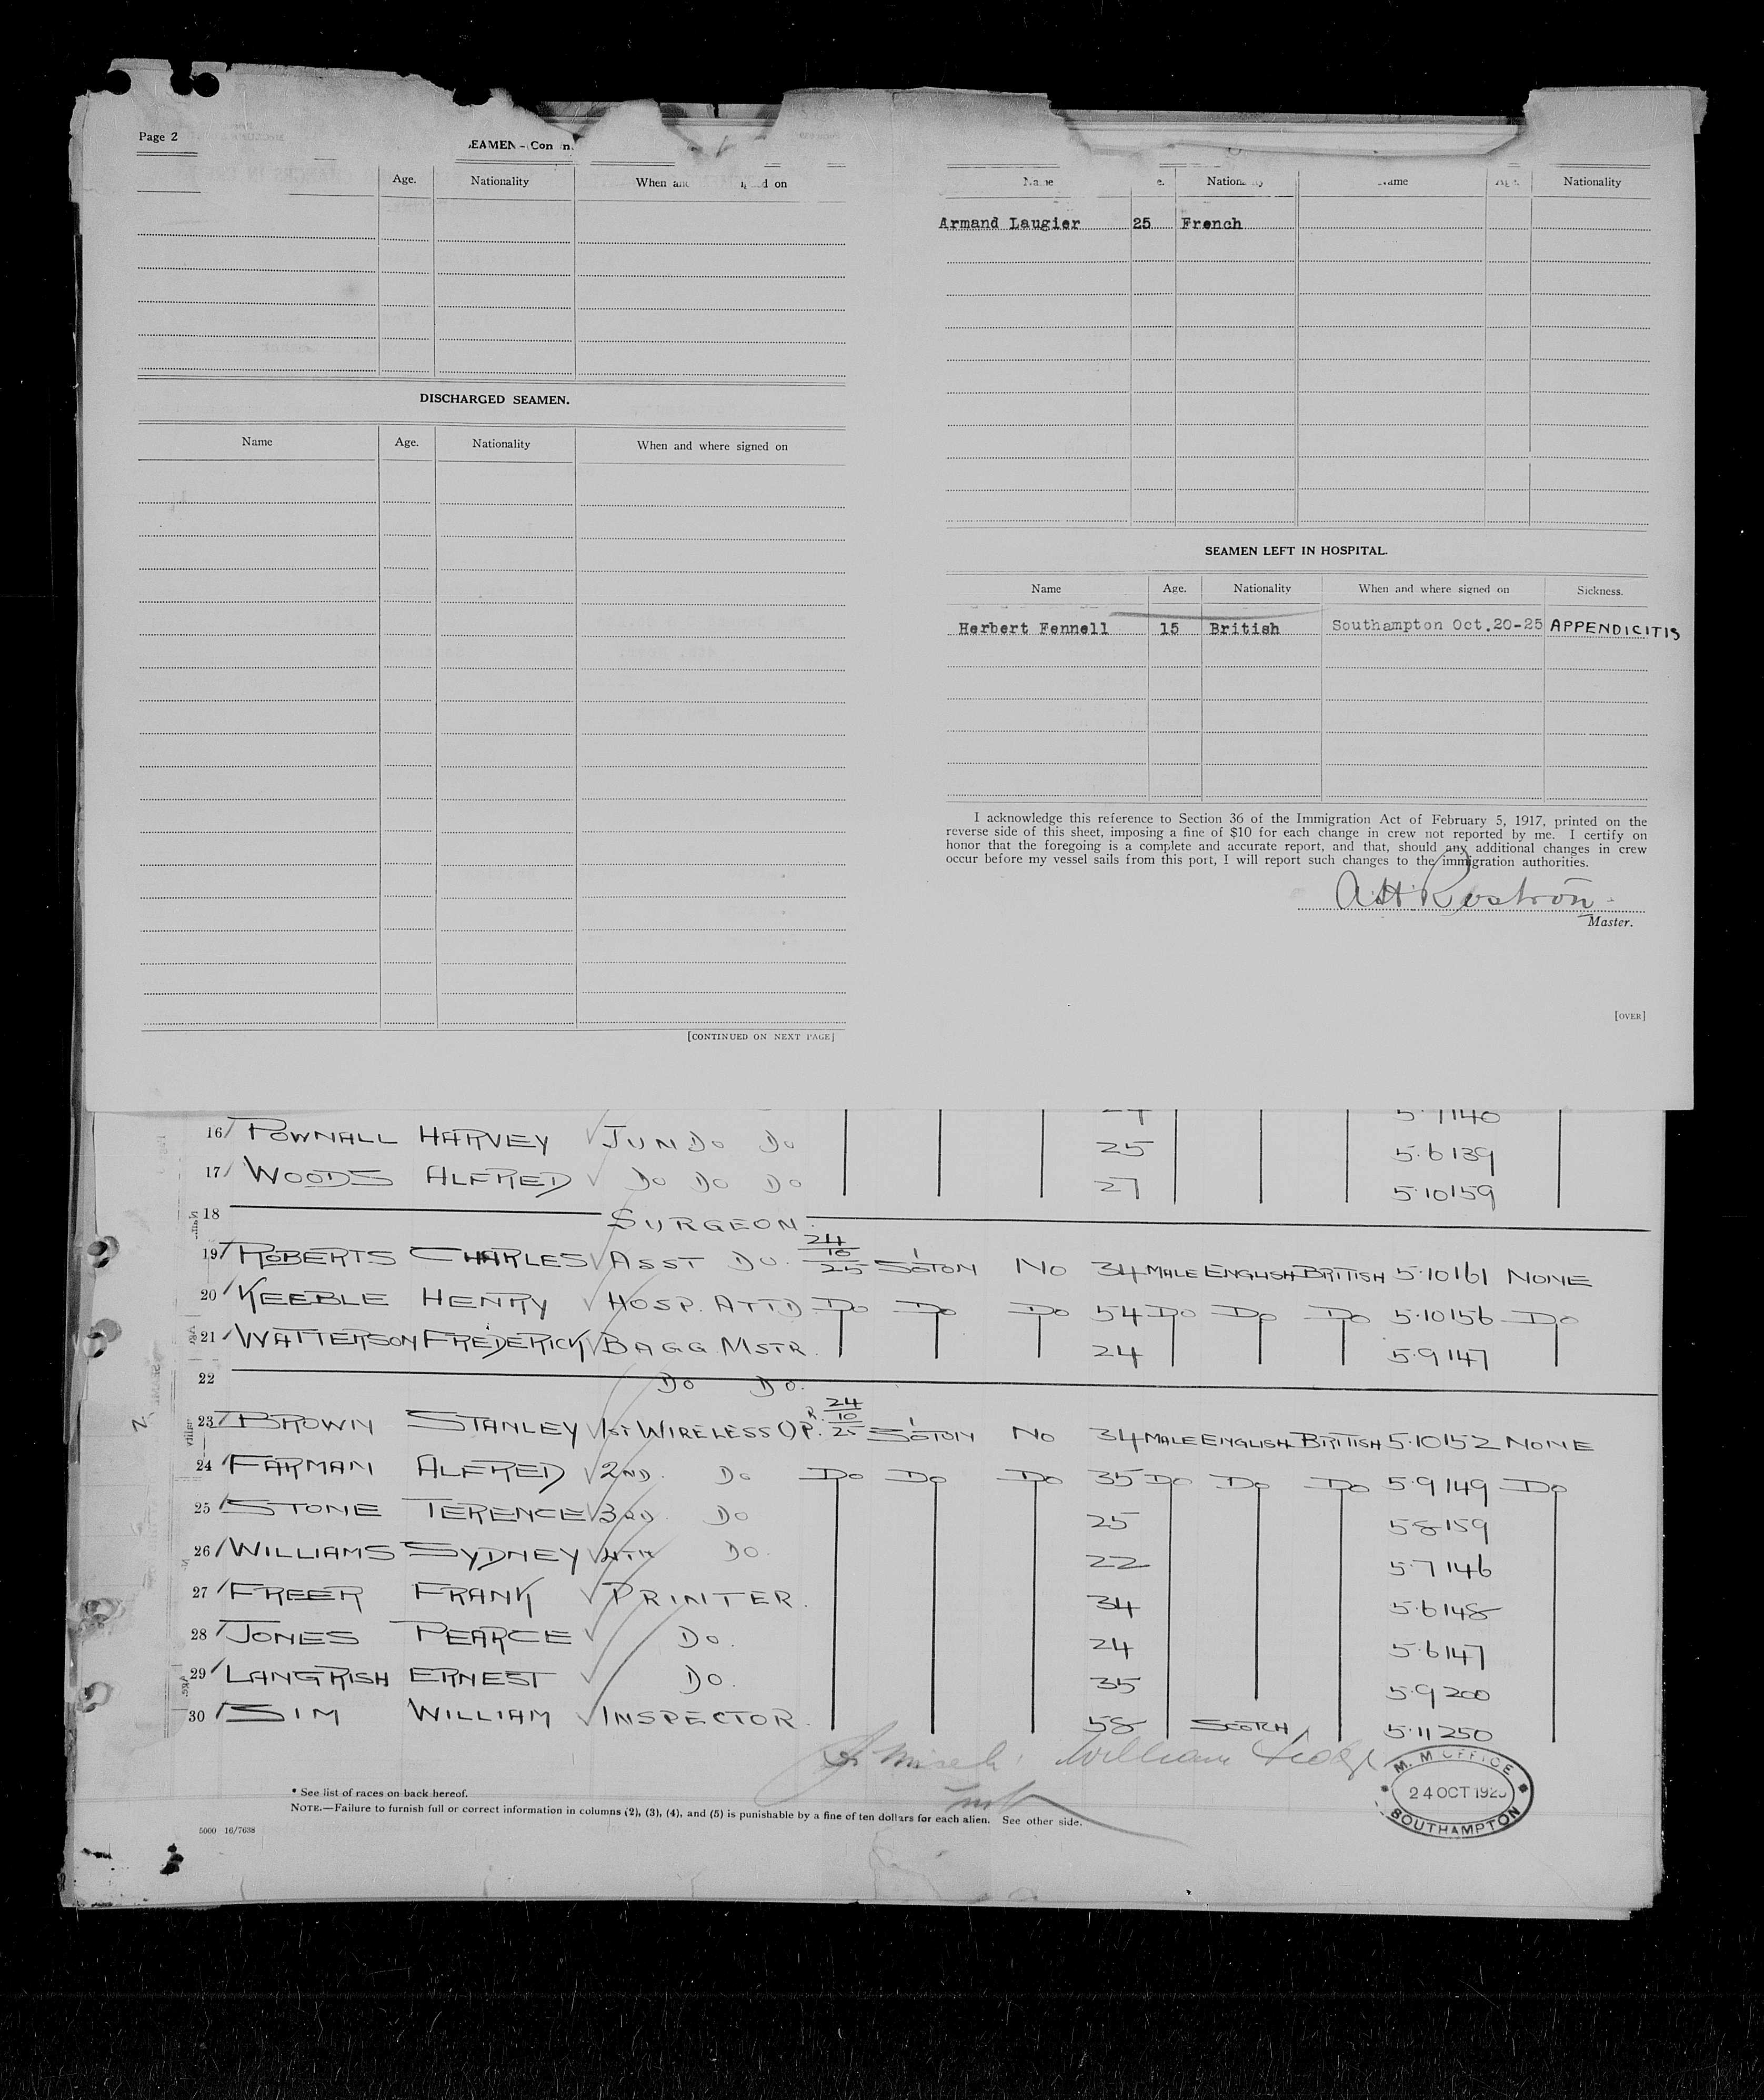 Page 2
Age. Nationality on
Nationality
Armand Laugier 25 French
DISCHARGED SEAMEN.
Name Age. Nationality When and where signed on
[CONTINUED ON NEXT PAGE]
SEAMEN LEFT IN HOSPITAL.
Name Age. Nationality When and where signed on Sickness.
Herbert Fennell 15 British Southampton Oct.20-25 APPENDICITIS
I acknowledge this reference to Section 36 of the Immigration Act of February 5, 1917, printed on the
reverse side of this sheet, imposing a fine of $10 for each change in crew not reported by me. I certify on
honor that the foregoing is a complete and accurate report, and that, should any additional changes in crew
occur before my vessel sails from this port, I will report such changes to the immigration authorities.
A H Rostron
Master.
[OVER]
16 POWNALL HARVEY JUN DO DO 25 5·6 139
17 WOODS ALFRED DO DO DO 27 5·10 159
18 SURGEON.
19 ROBERTS CHARLES ASST DO. 24/10/25 SOTON NO 34 MALE ENGLISH BRITISH 5·10 161 NONE
20 KEEBLE HENRY HOSP. ATTD DO DO DO 54 DO DO DO 5·10 156 DO
21 WATTERSON FREDERICK BAGG. MSTR. 24 5·9 147
22 DO DO.
23 BROWN STANLEY 1ST WIRELESS OPR. 24/10/25 SOTON NO 34 MALE ENGLISH BRITISH 5·10 152 NONE
24 FARMAN ALFRED 2ND. DO DO DO DO 35 DO DO DO 5·9 149 DO
25 STONE TERENCE 3RD. DO 25 5·8 159
26 WILLIAMS SYDNEY 4TH DO. 22 5·7 146
27 FREER FRANK PRINTER. 34 5·6 148
28 JONES PEARCE DO. 24 5·6 147
29 LANGRISH ERNEST DO. 35 5·9 200
30 SIM WILLIAM INSPECTOR. 58 SCOTCH 5·11 250
William
M. M OFFICE
24 OCT 1925
SOUTHAMPTON
* See list of races on back hereof.
NOTE.—Failure to furnish full or correct information in columns (2), (3), (4), and (5) is punishable by a fine of ten dollars for each alien. See other side.
5000 16/7638